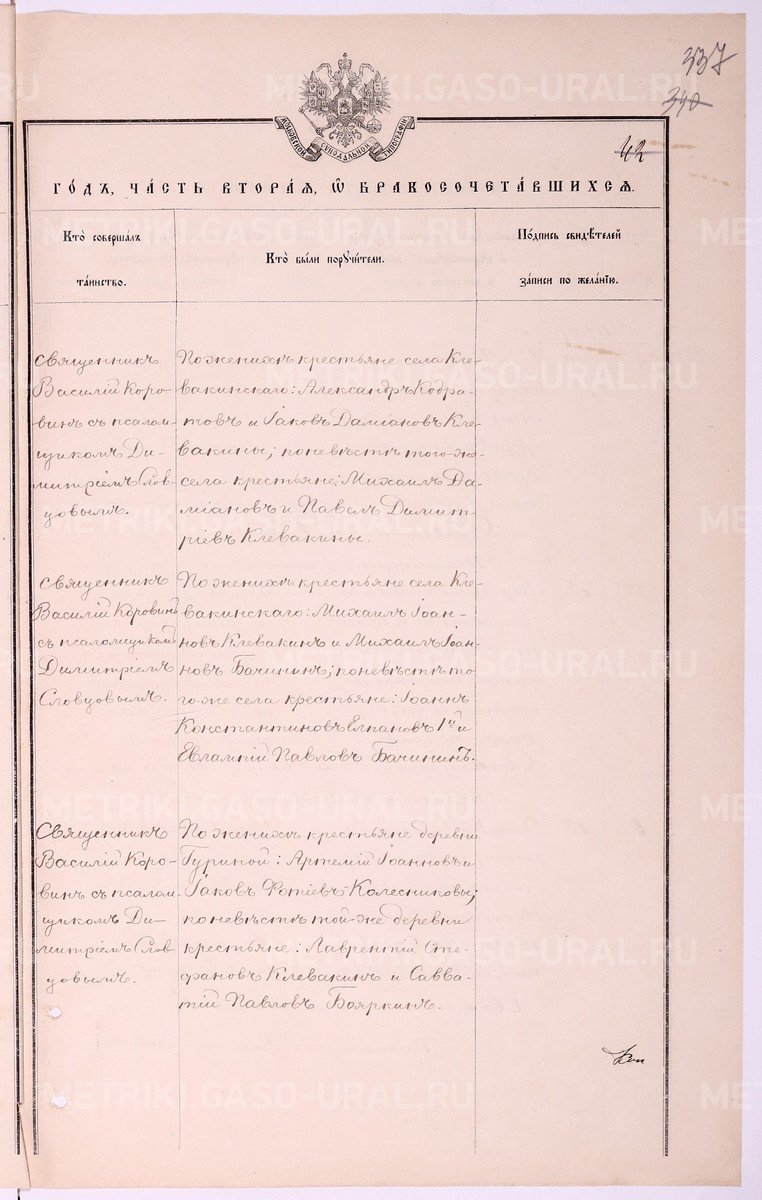 337
340
МОСКОВСКОЙ СѴНОДАЛЬНОЙ ТИПОГРАФІИ
42
ГО́ДЪ, ЧА́СТЬ ВТОРА́Я, Ѡ҆ БРАКОСОЧЕТА́ВШИХСЯ.
Кто̀ соверша́лъ
та́инство.
Кто̀ бы́ли порꙋчи́тели.
По́дпись свидѣ́телей
за́писи по жела́нїю.
Священникъ
Василій Коро-
винъ съ псалом-
щикомъ Ди-
митріемъ Слов-
цовымъ.
По женихѣ крестьяне села Кле-
вакинскаго: Александръ Кодра-
товъ и Іаковъ Даміановъ Кле-
вакины; по невѣстѣ того-же
села крестьяне: Михаилъ Да-
міановъ и Павелъ Димит-
ріевъ Клевакины.
Священникъ
Василій Коровинъ
съ псаломщикомъ
Димитріемъ
Словцовымъ.
По женихѣ крестьяне села Кле-
вакинскаго: Михаилъ Іоан-
новъ Клевакинъ и Михаилъ Іоан-
новъ Бачининъ; по невѣстѣ то-
го-же села крестьяне: Іоаннъ
Константиновъ Елпановъ 1й и
Евлампій Павловъ Бачининъ.
Священникъ
Василій Коро-
винъ съ псалом-
щикомъ Ди-
митріемъ Слов-
цовымъ.
По женихѣ крестьяне деревни
Гуриной: Артемій Іоанновъ и
Іаковъ Фотіевъ Колесниковы;
по невѣстѣ той-же деревни
крестьяне: Лаврентій Сте-
фановъ Клевакинъ и Савва-
тій Павловъ Бояркинъ.
METRIKI.GASO-URAL.RU